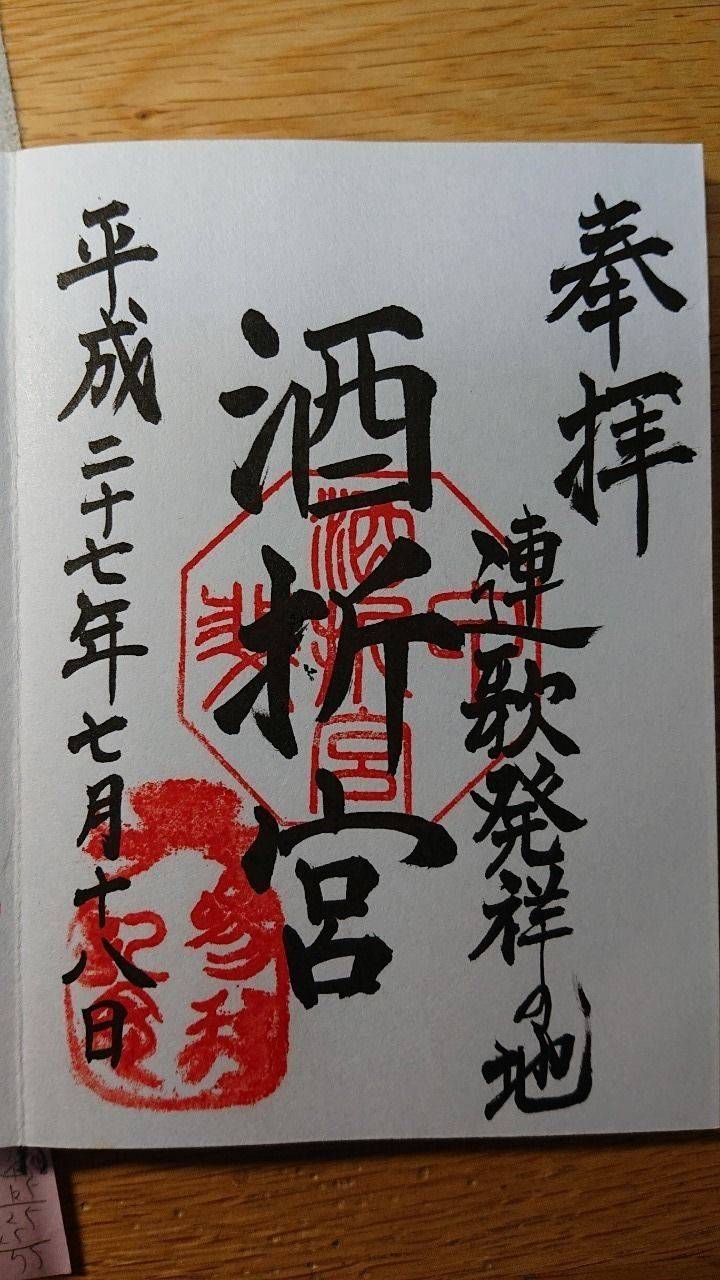 奉拝
連歌発祥の地
酒折宮
平成二十七年七月十八日
酒折宮
甲斐
参拝
記念
25
55